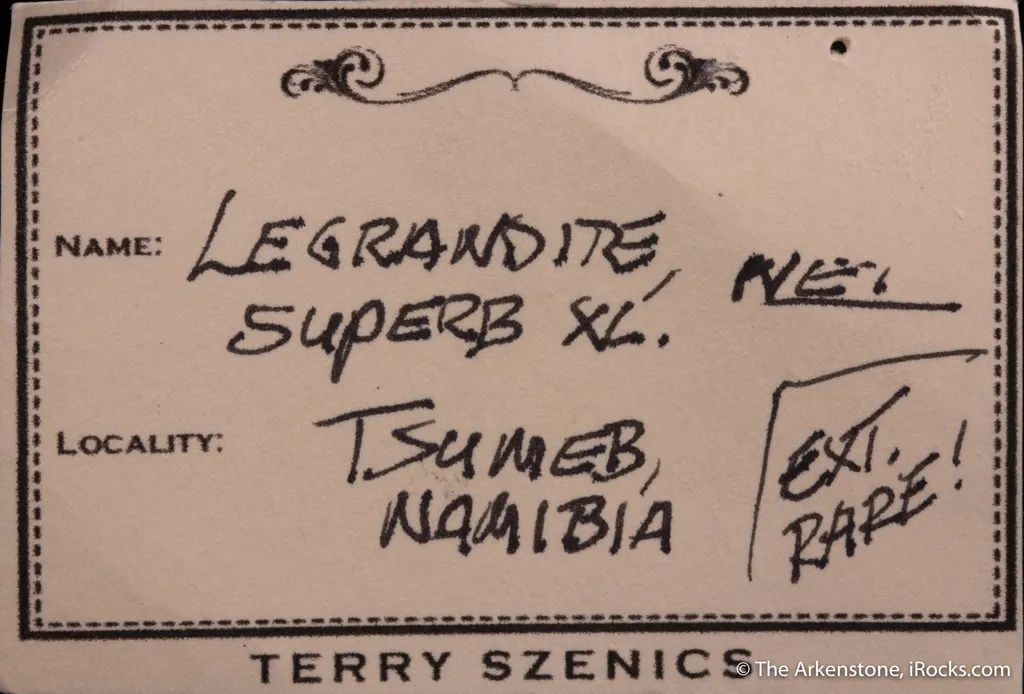 NAME: LEGRANDITE,
SUPERB XL'.
LOCALITY: TSUMEB,
NAMIBIA
EXT.
RARE!
TERRY SZENICS
© The Arkenstone, iRocks.com